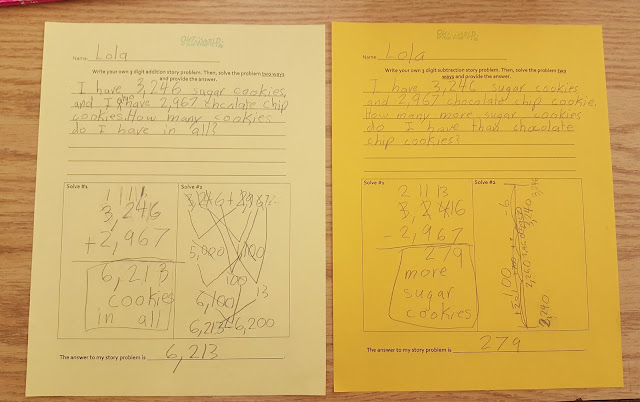 Name: Lola
Write your own 3 digit addition story problem. Then, solve the problem two ways
and provide the answer.
I have 3,246 sugar cookies
and I have 2,967 chcolate chip
cookies. How many cookies
do I have in all?
Solve #1
1 1 1 1
3,246
+2,967
6,213
cookies
in all
Solve #2
5,000
100
100
13
6,100
6,213
6,200
The answer to my story problem is 6,213
Name: Lola
Write your own 3 digit subtraction story problem. Then, solve the problem two
ways and provide the answer.
I have 3,246 sugar cookies
and 2,967 chocolate chip cookie.
How many more sugar cookies
do I have than chocolate
chip cookies?
Solve #1
2 11 13
-2,967
279
more
sugar
cookies
Solve #2
100
6
3,240
2,240
The answer to my story problem is 279